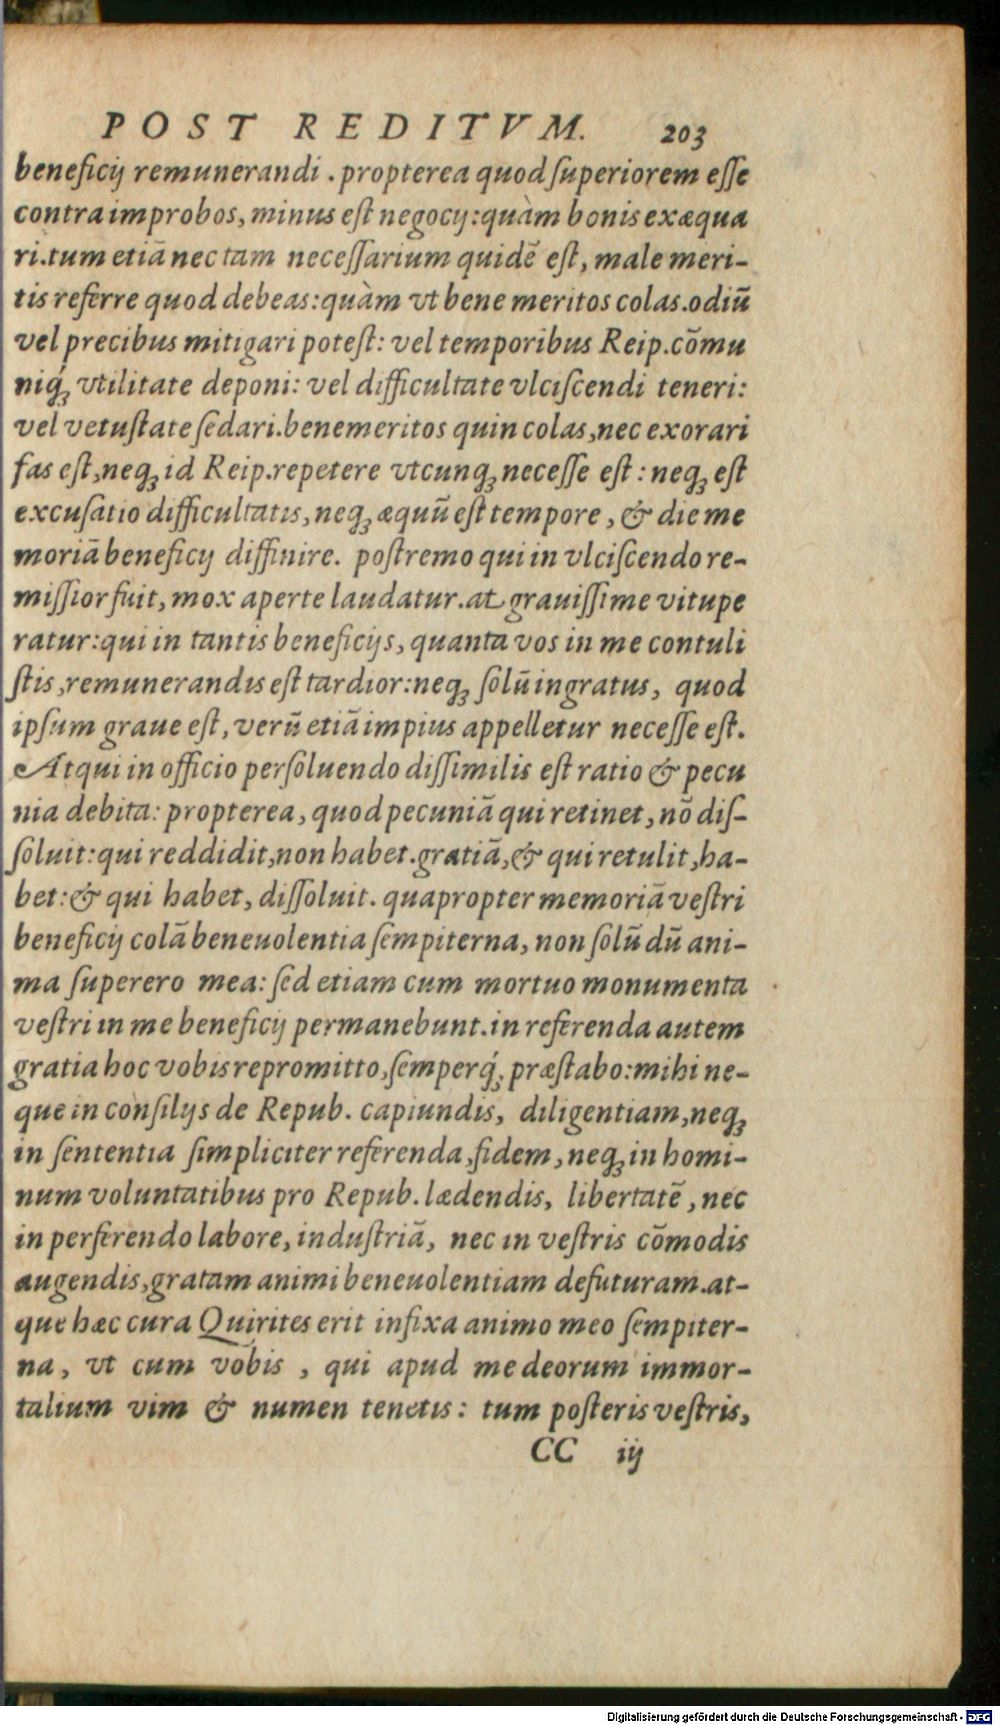 POST REDITVM. 203
beneficij remunerandi . propterea quod ſuperiorem eſſe
contra improbos, minus eſt negocij: quàm bonis exæqua
ri. tum etiā nec tam neceſſarium quidē eſt, male meri-
tis referre quod debeas: quàm vt bene meritos colas. odiū
vel precibus mitigari poteſt: vel temporibus Reip. cōmu
niq́ꝫ vtilitate deponi: vel difficultate vlciſcendi teneri:
vel vetuſtate ſedari. benemeritos quin colas, nec exorari
fas eſt, neqꝫ id Reip. repetere vtcunqꝫ neceſſe est: neqꝫ eſt
excuſatio difficultatis, neqꝫ æquū eſt tempore, & die me
moriā beneficij diffinire. poſtremo qui in vlciſcendo re-
miſſior fuit, mox aperte laudatur. at grauiſſime vitupe
ratur: qui in tantis beneficijs, quanta vos in me contuli
ſtis, remunerandis eſt tardior: neqꝫ ſolū ingratus, quod
ipſum graue eſt, verū etiā impius appelletur neceſſe eſt.
Atqui in officio perſoluendo diſſimilis eſt ratio & pecu
nia debita: propterea, quod pecuniā qui retinet, nō diſ-
ſoluit: qui reddidit, non habet. gratiā, & qui retulit, ha-
bet: & qui habet, diſſoluit. quapropter memoriā veſtri
beneficij colā beneuolentia ſempiterna, non ſolū dū ani-
ma ſuperero mea: ſed etiam cum mortuo monumenta
veſtri in me beneficij permanebunt. in referenda autem
gratia hoc vobis repromitto, ſemperq́ꝫ præſtabo: mihi ne-
que in conſilijs de Repub. capiundis, diligentiam, neqꝫ
in ſententia ſimpliciter referenda, fidem, neqꝫ in homi-
num voluntatibus pro Repub. lædendis, libertatē, nec
in perferendo labore, induſtriā, nec in veſtris cōmodis
augendis, gratam animi beneuolentiam defuturam. at-
que hæc cura Quirites erit infixa animo meo ſempiter-
na, vt cum vobis , qui apud me deorum immor-
talium vim & numen tenetis: tum poſteris veſtris,
CC iij
Digitalisierung gefördert durch die Deutsche Forschungsgemeinschaft - DFG